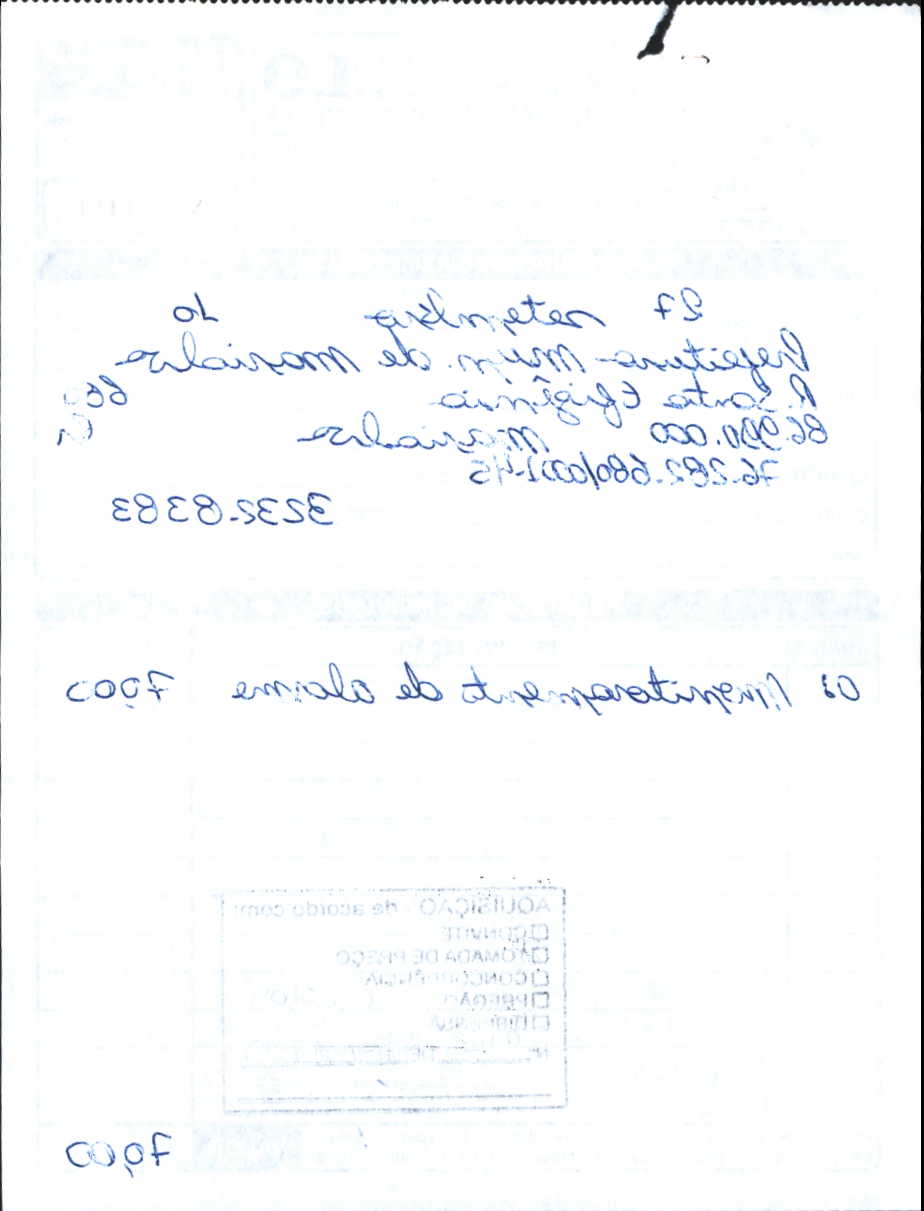 27 setembro 10
Prefeitura Mun. de Marialva
R. Santa Efigênia 680
86.990.000 Marialva Pr
76.282.680/0001-45
3232-8383
03 Monitoramento de alarme 70,00
AQUISIÇÃO de acordo com:
☐ CONVITE
☐ TOMADA DE PREÇO
☐ CONCORRÊNCIA
☐ PREGÃO
Nº
70,00